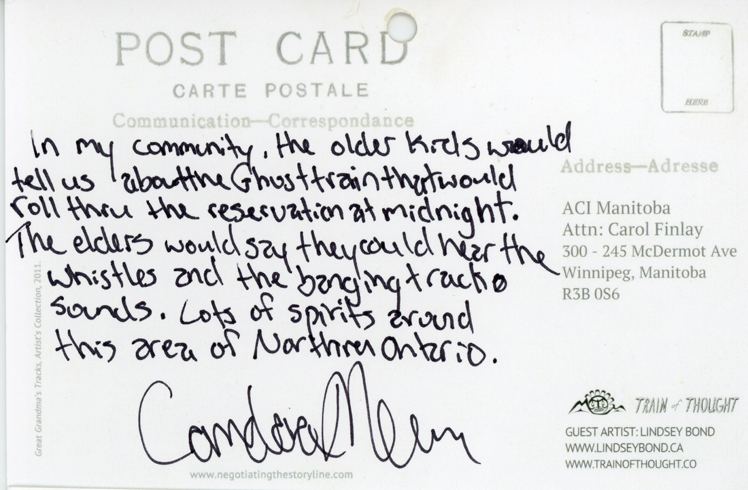 POST CARD
CARTE POSTALE
Communication—Correspondance
In my community, the older kids would
tell us about the Ghost train that would
roll thru the reservation at midnight.
The elders would say they could hear the
whistles and the banging track
sounds. Lots of spirits around
this area of Northern Ontario.
www.negotiatingthestoryline.com
Great Grandma's Tracks, Artist's Collection, 2011.
STAMP
HERE
Address—Adresse
ACI Manitoba
Attn: Carol Finlay
300 - 245 McDermot Ave
Winnipeg, Manitoba
R3B 0S6
TRAIN of THOUGHT
GUEST ARTIST: LINDSEY BOND
WWW.LINDSEYBOND.CA
WWW.TRAINOFTHOUGHT.CO